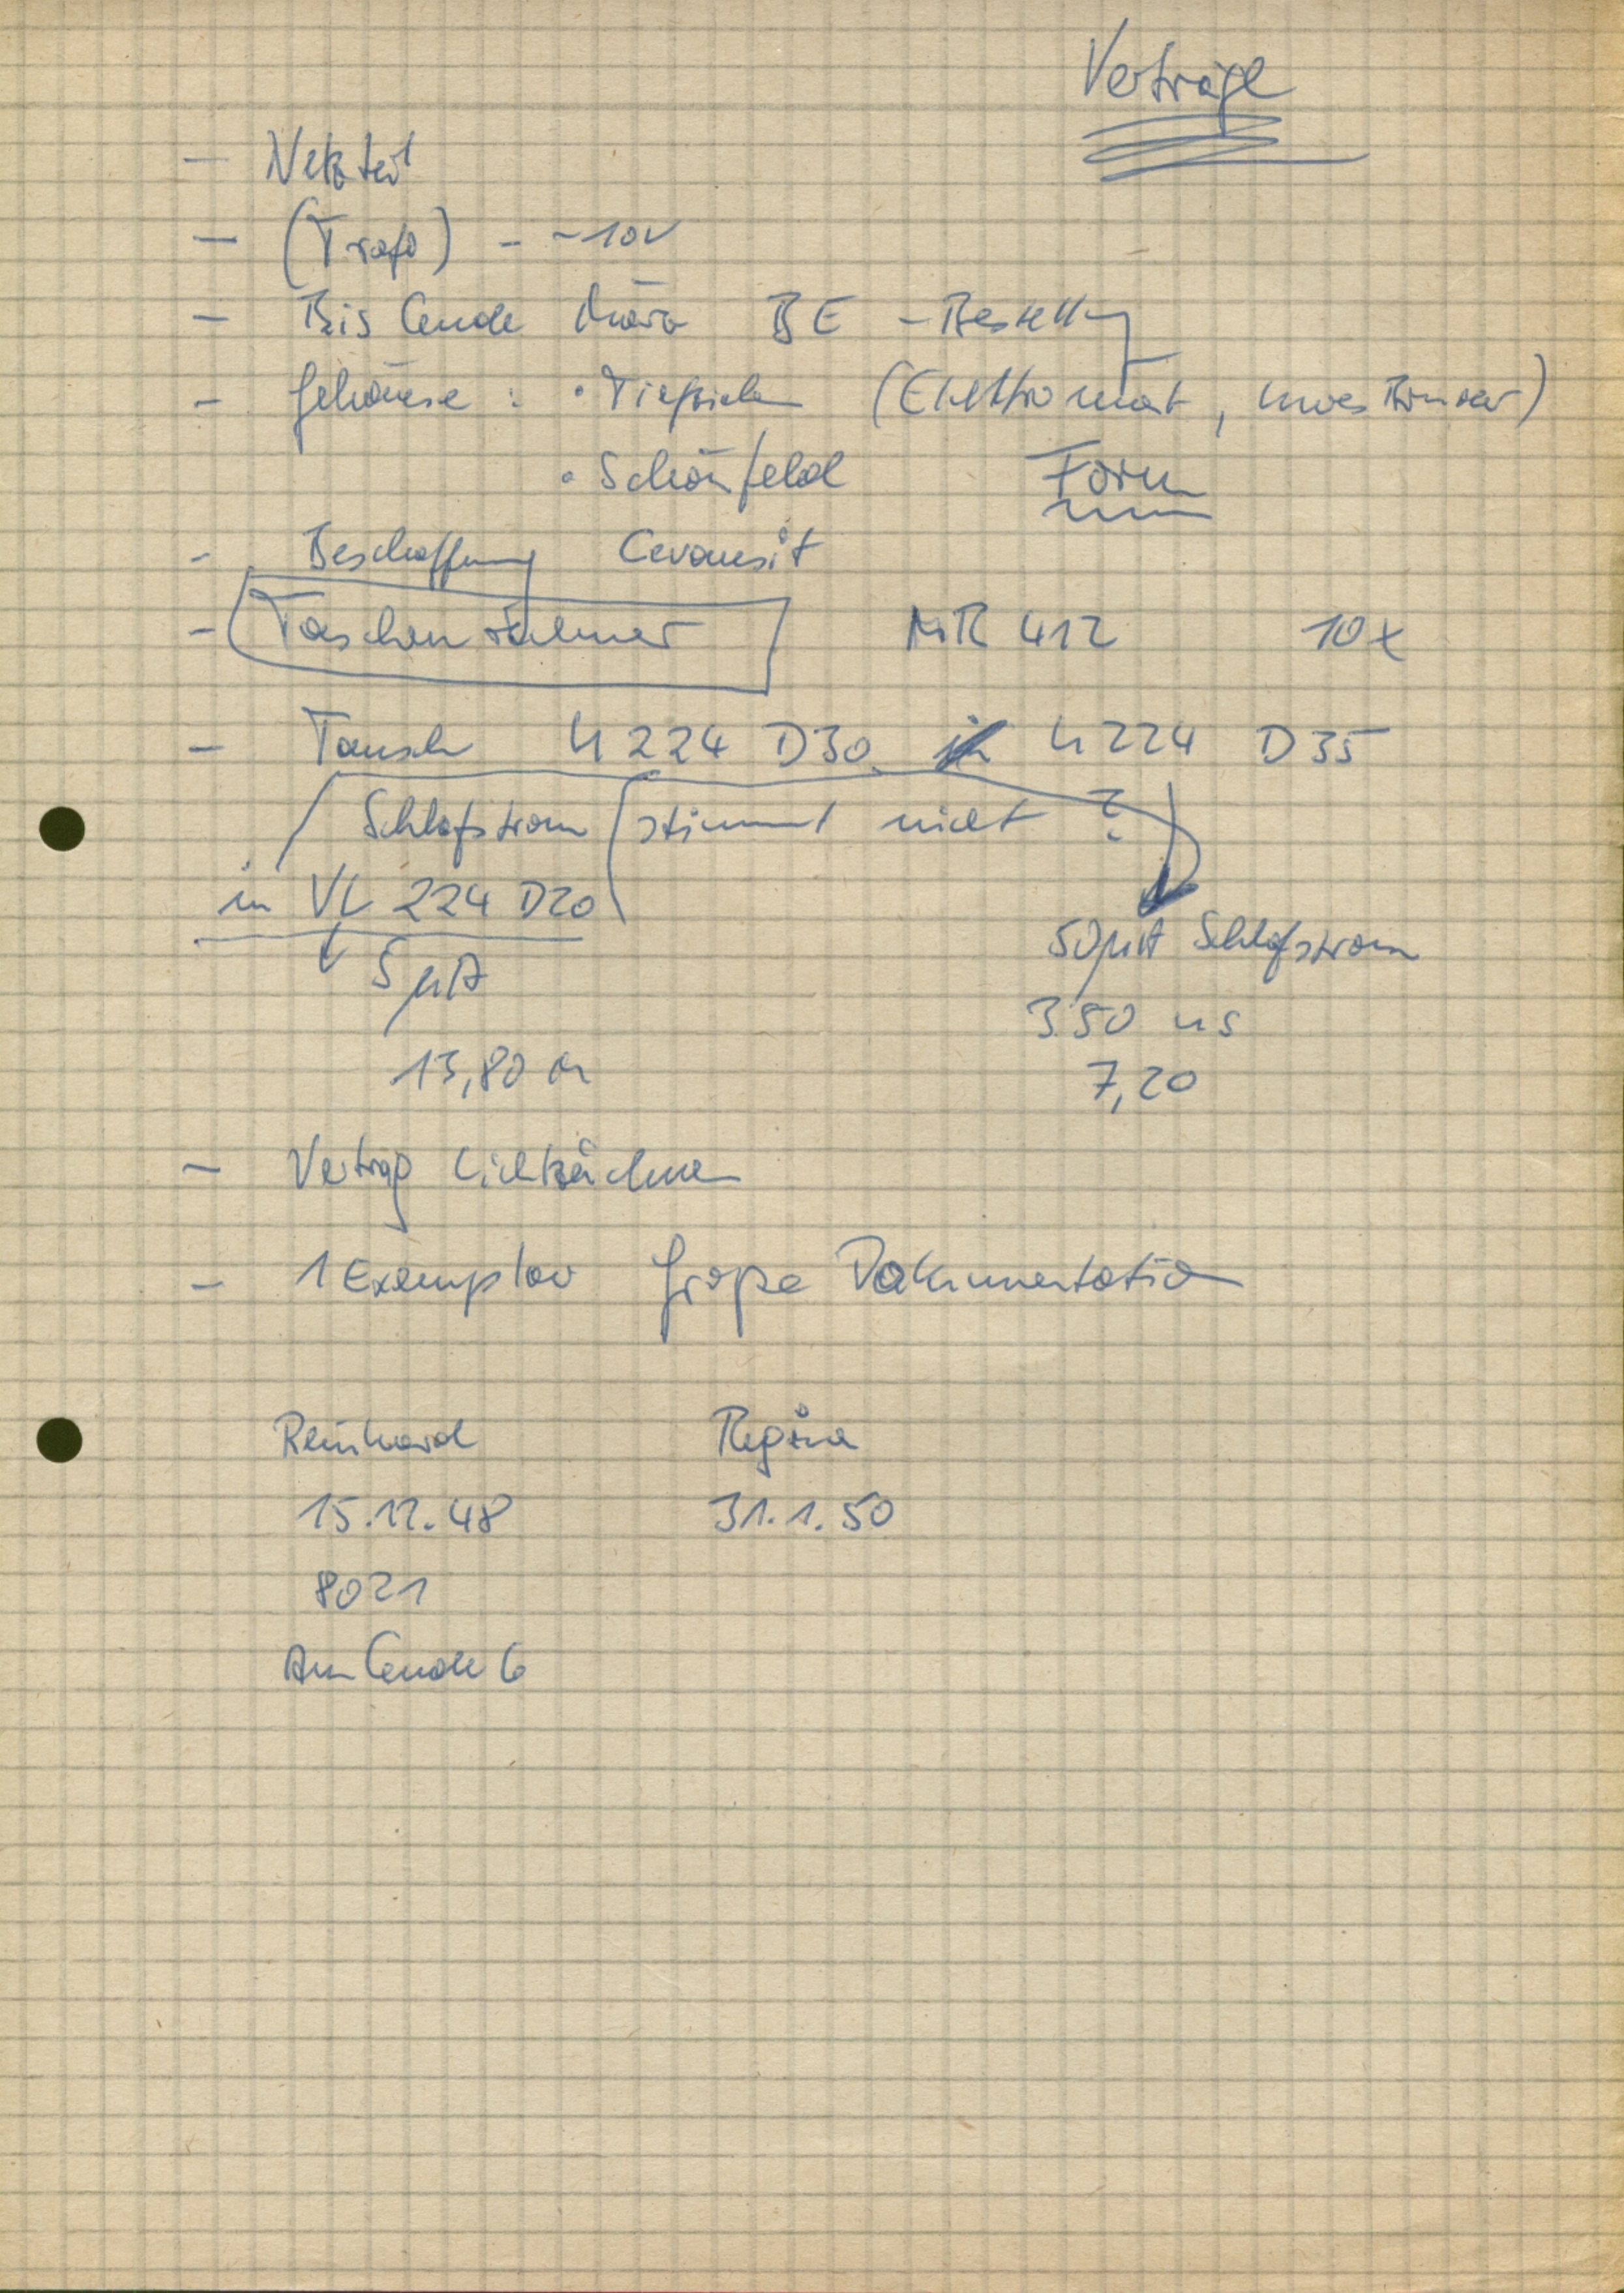 Verträge
- Netzteil
- (Trafo) - ~10V
- Bis Ende März BE - Bestellg
- Gehäuse : • Tiefziehen (Elektromat,
• Schönfeld Form
- Beschaffung Cevausit
- Taschenrechner MR 412 10x
- Tausch U 224 D30 in U 224 D35
Schlafstrom stimmt nicht ?
in VL 224 D20
5 µA
50 µA Schlafstrom
350 ns
13,80 M
7,20
- Vertrag
- 1 Exemplar große Dokumentation
Reinhard Regina
15.12.48 31.1.50
8021
Am Ende 6